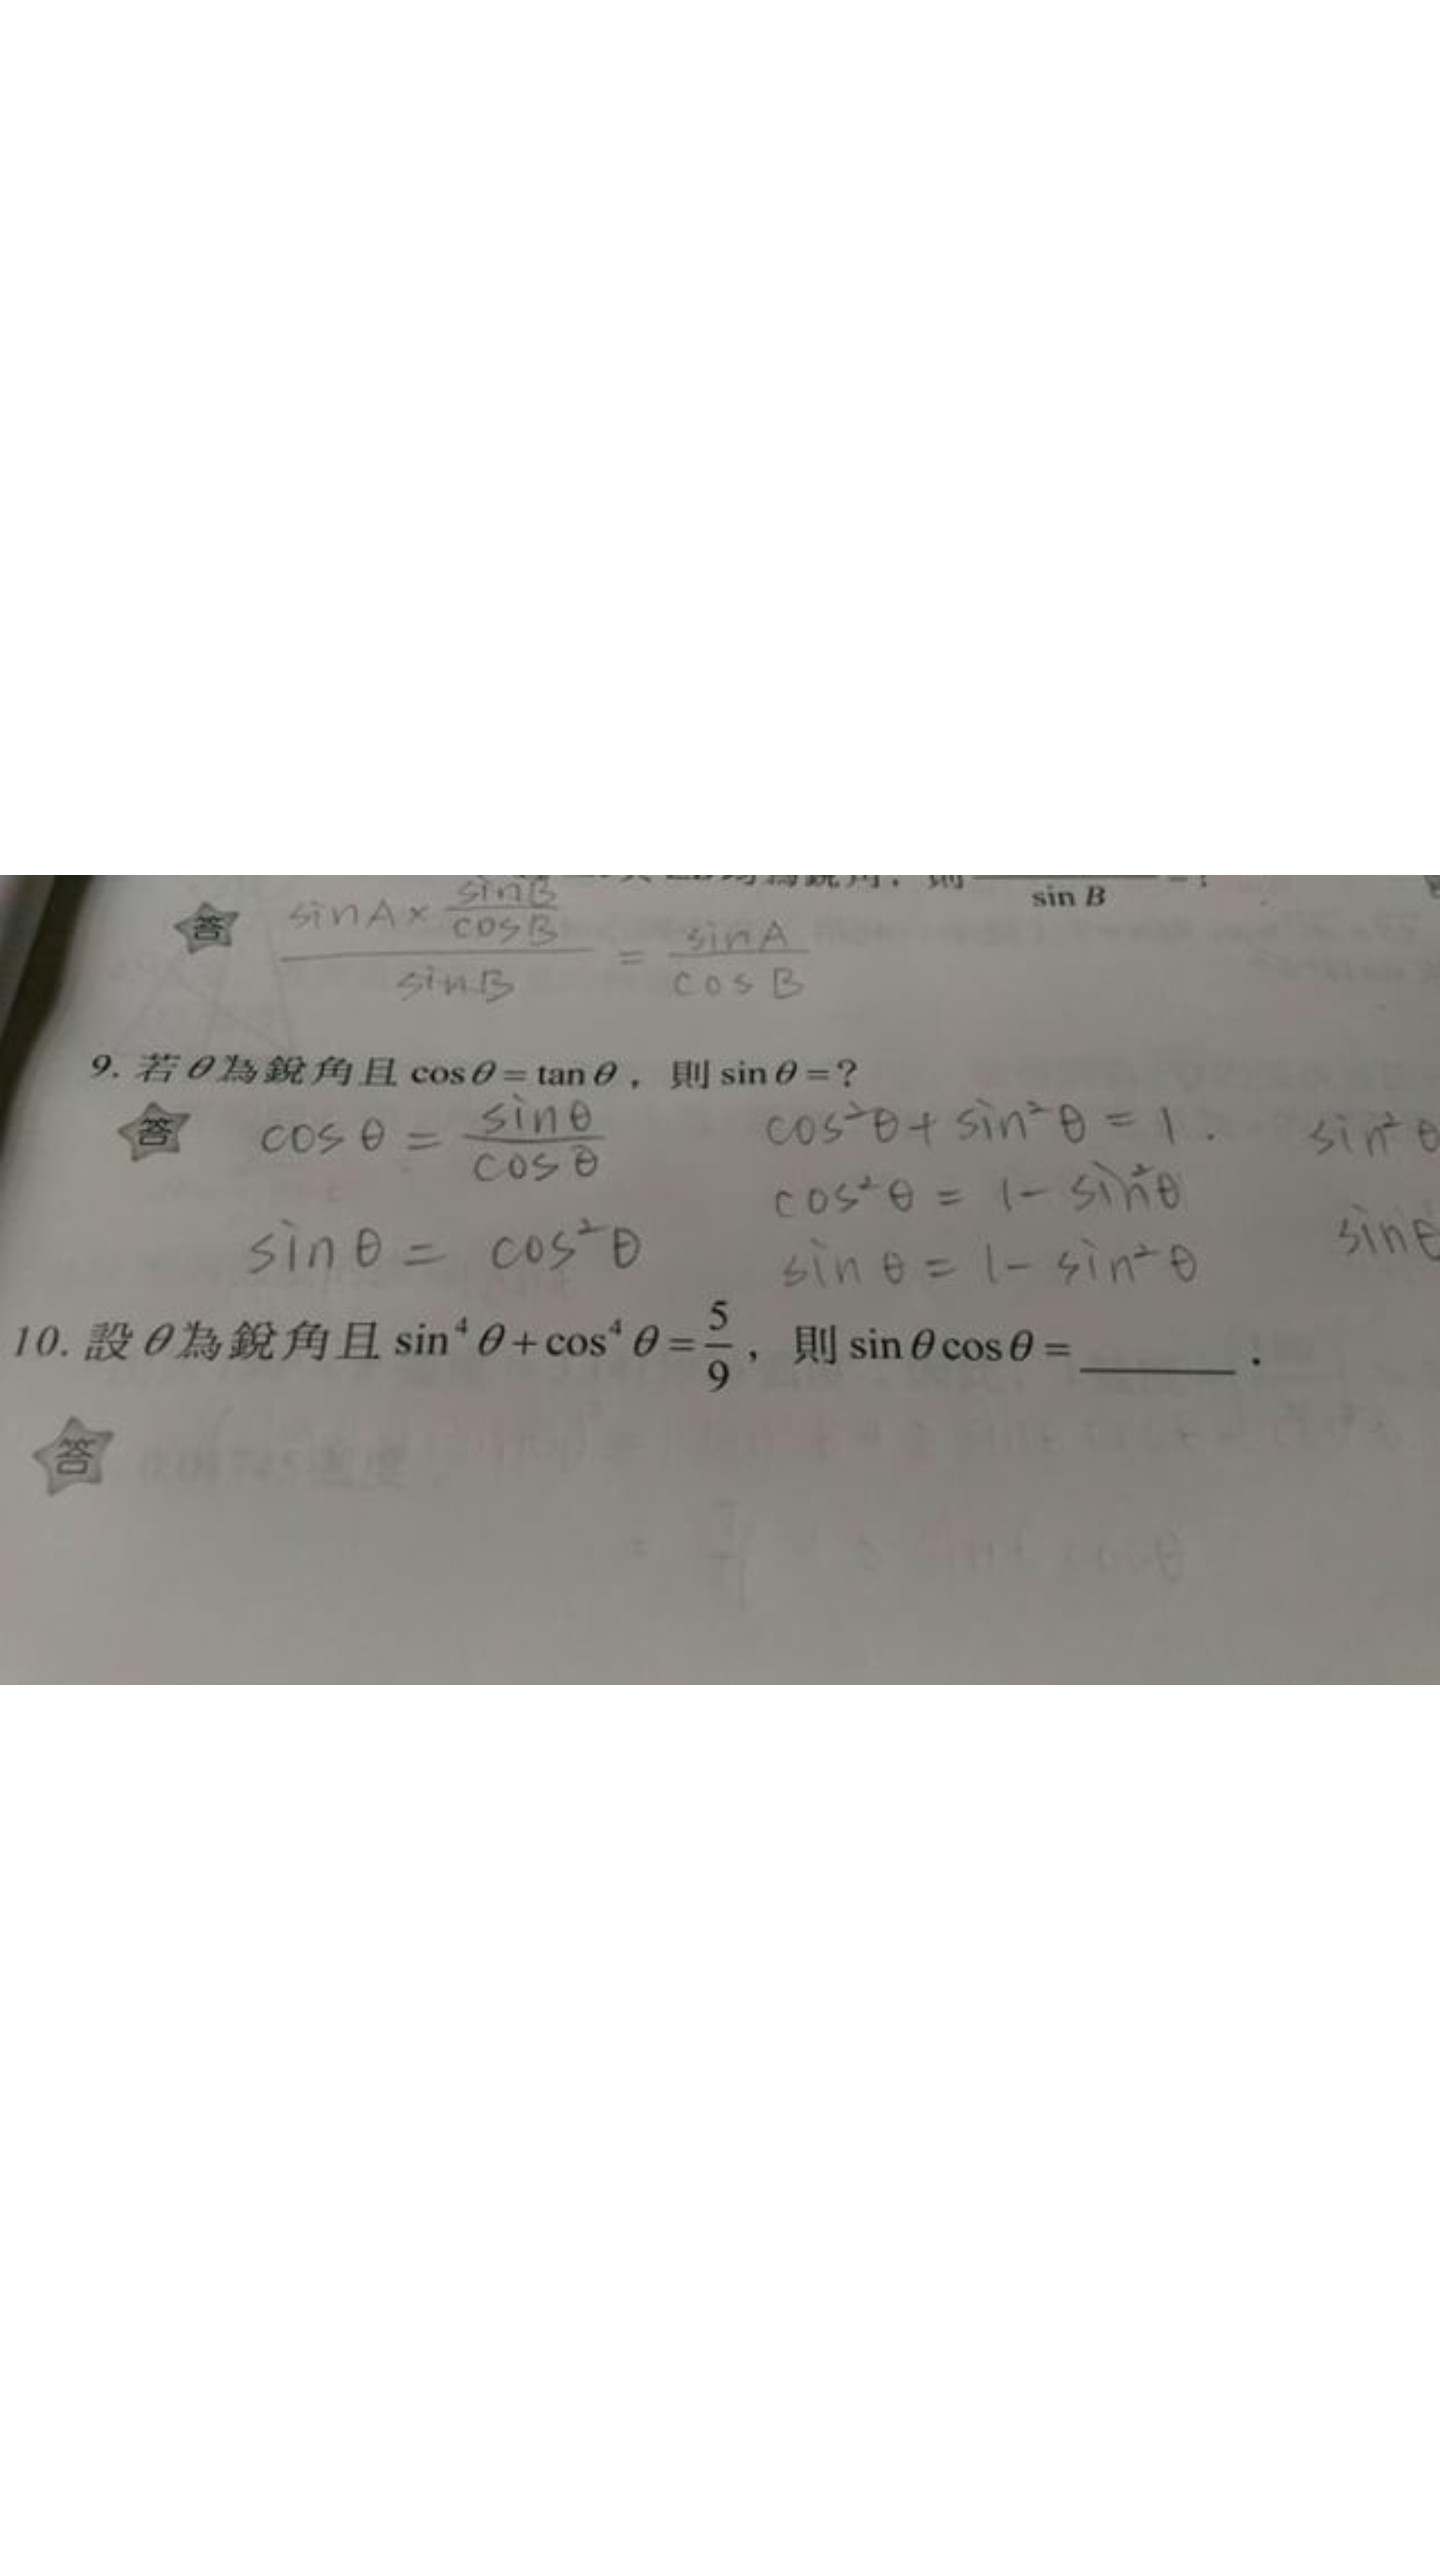 sin B
答 sinA× sinB/cosB / sinB = sinA / cosB
9. 若θ為銳角且 cosθ = tanθ，則 sinθ = ?
答 cosθ = sinθ/cosθ cos²θ + sin²θ = 1. sin²θ
cos²θ = 1 - sin²θ
sinθ = cos²θ sinθ = 1 - sin²θ sinθ
10. 設θ為銳角且 sin⁴θ + cos⁴θ = 5/9，則 sinθcosθ = ______.
答